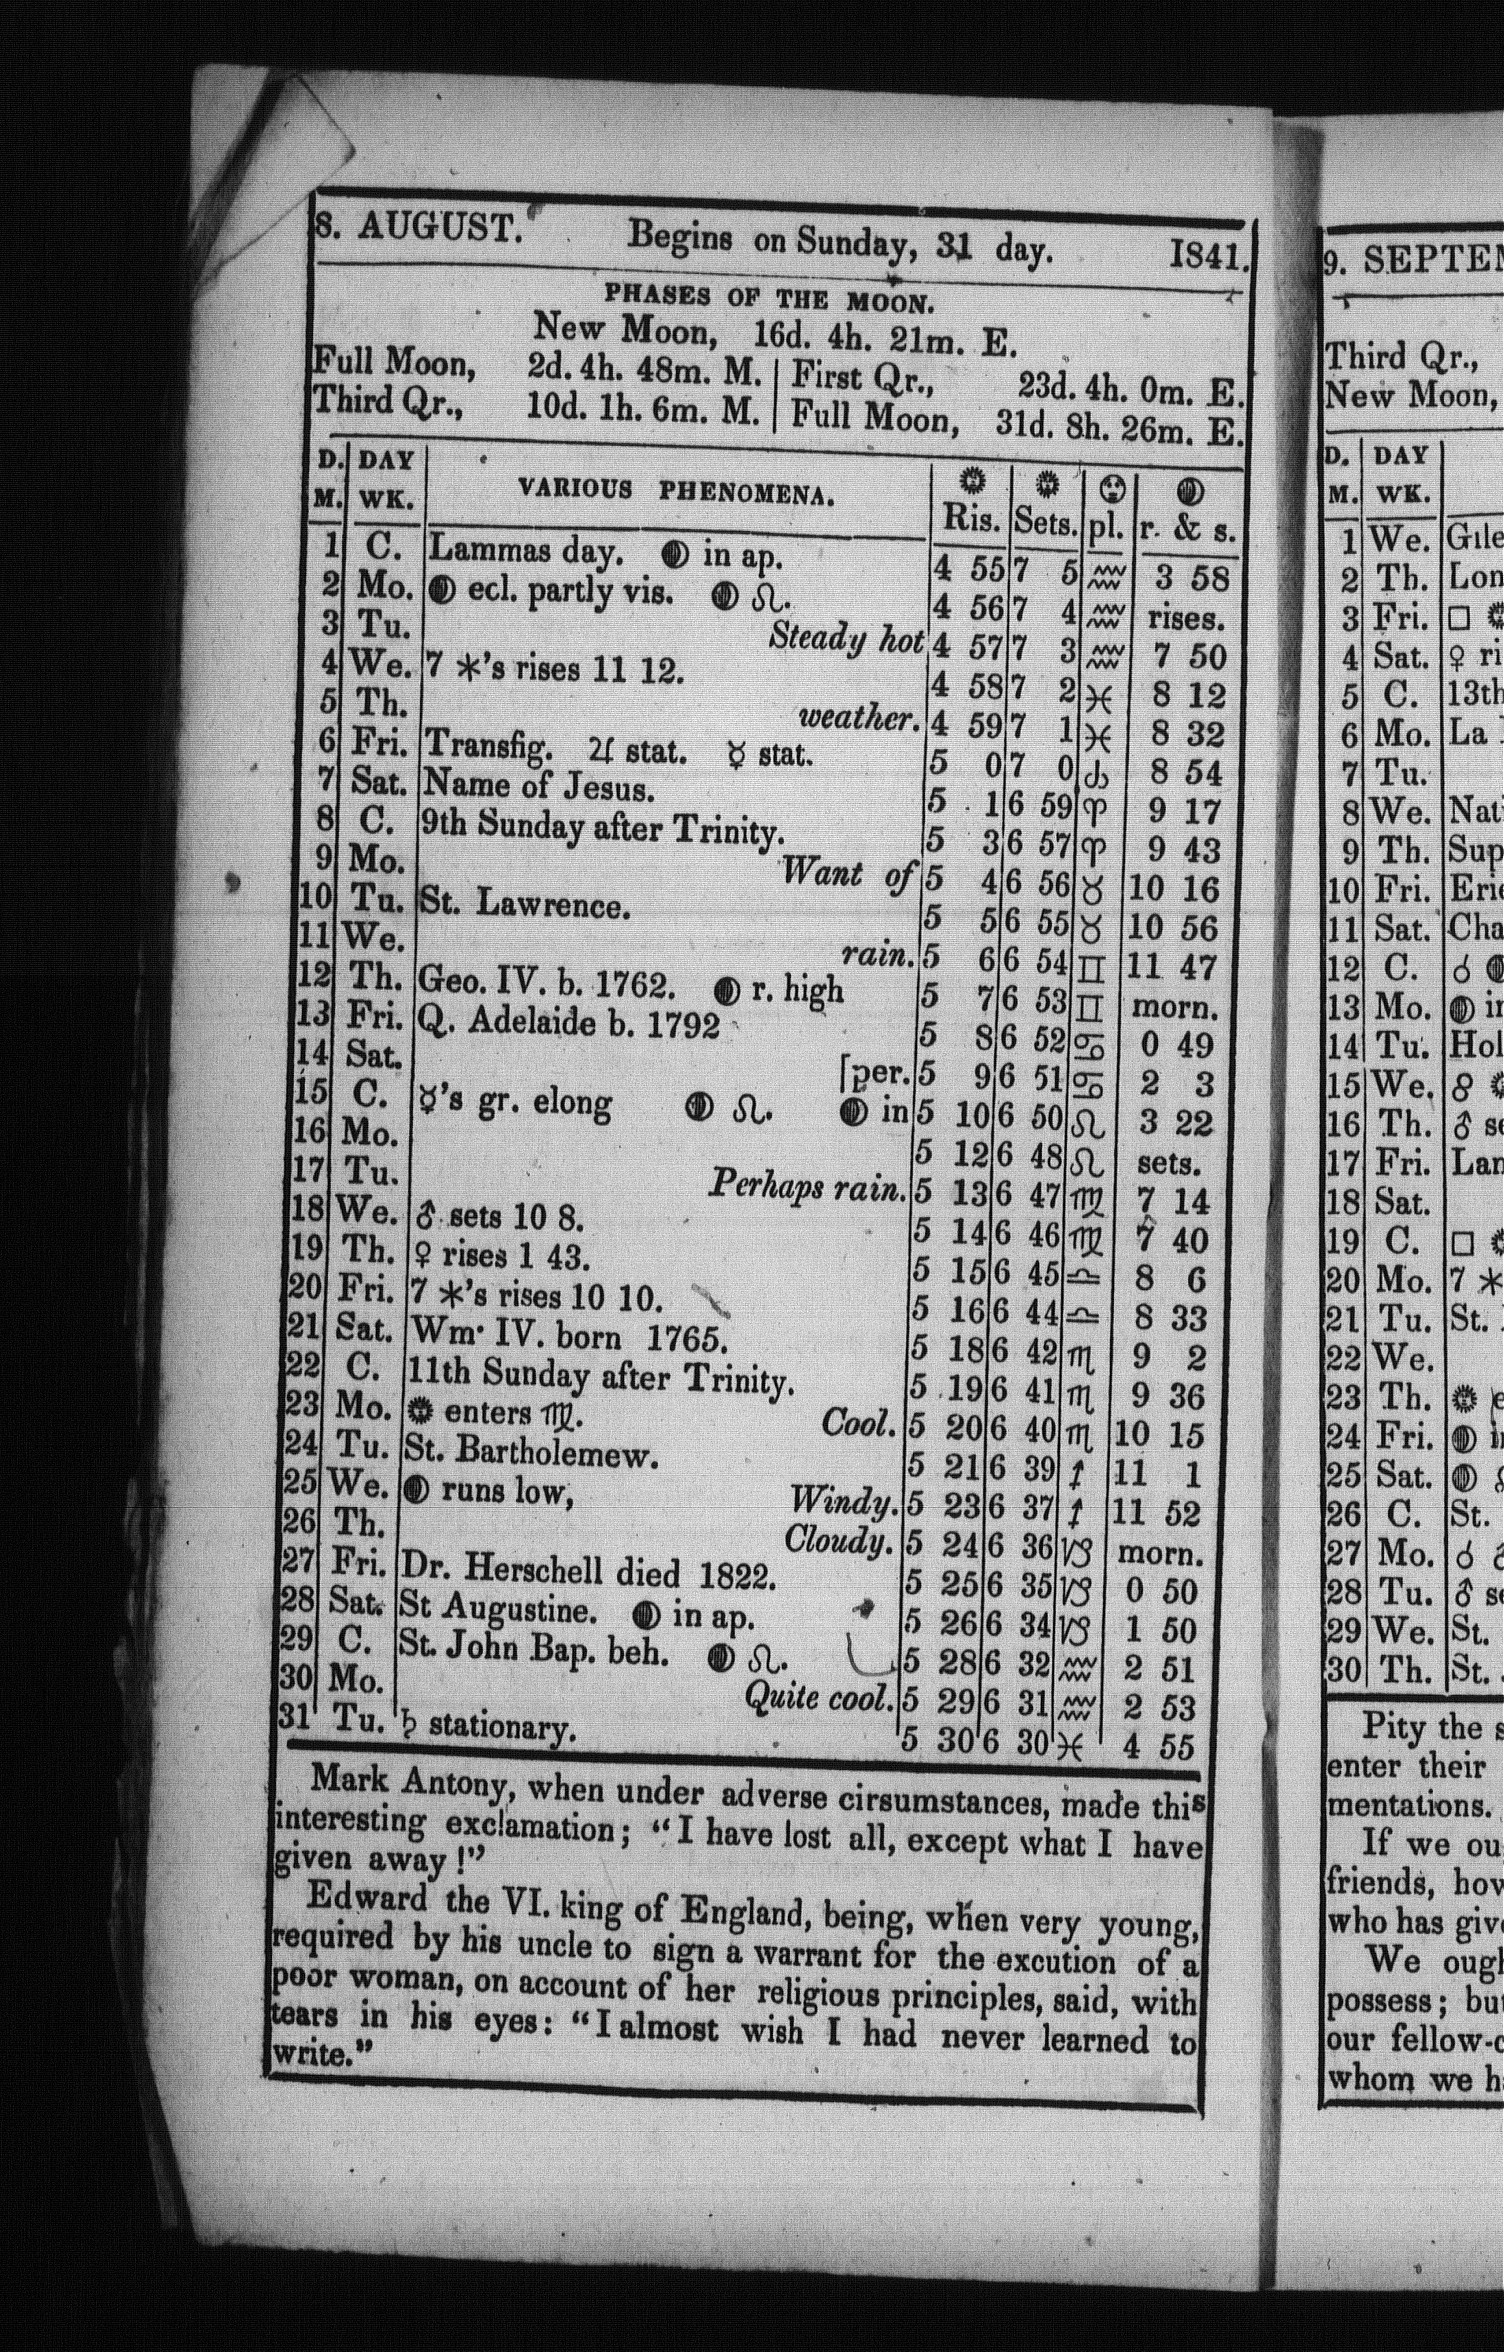 8. AUGUST. Begins on Sunday, 31 day. 1841.
PHASES OF THE MOON.
New Moon, 16d. 4h. 21m. E.
Full Moon, 2d. 4h. 48m. M. | First Qr., 23d. 4h. 0m. E.
Third Qr., 10d. 1h. 6m. M. | Full Moon, 31d. 8h. 26m. E.
D. M. DAY WK. VARIOUS PHENOMENA. Ris. Sets. pl. r. & s.
1 C. Lammas day. ◍ in ap. 4 55 7 5 ♒ 3 58
2 Mo. ◍ ecl. partly vis. ◍ ☊. 4 56 7 4 ♒ rises.
3 Tu. Steady hot 4 57 7 3 ♒ 7 50
4 We. 7 *'s rises 11 12. 4 58 7 2 ♓ 8 12
5 Th. weather. 4 59 7 1 ♓ 8 32
6 Fri. Transfig. ♃ stat. ☿ stat. 5 0 7 0 ♈ 8 54
7 Sat. Name of Jesus. 5 1 6 59 ♈ 9 17
8 C. 9th Sunday after Trinity. 5 3 6 57 ♈ 9 43
9 Mo. Want of 5 4 6 56 ♉ 10 16
10 Tu. St. Lawrence. 5 5 6 55 ♉ 10 56
11 We. rain. 5 6 6 54 ♊ 11 47
12 Th. Geo. IV. b. 1762. ◍ r. high 5 7 6 53 ♊ morn.
13 Fri. Q. Adelaide b. 1792 5 8 6 52 ♋ 0 49
14 Sat. [per. 5 9 6 51 ♋ 2 3
15 C. ☿'s gr. elong ◍ ☊. ◍ in 5 10 6 50 ♌ 3 22
16 Mo. 5 12 6 48 ♌ sets.
17 Tu. Perhaps rain. 5 13 6 47 ♍ 7 14
18 We. ♂ sets 10 8. 5 14 6 46 ♍ 7 40
19 Th. ♀ rises 1 43. 5 15 6 45 ♎ 8 6
20 Fri. 7 *'s rises 10 10. 5 16 6 44 ♎ 8 33
21 Sat. Wm. IV. born 1765. 5 18 6 42 ♏ 9 2
22 C. 11th Sunday after Trinity. 5 19 6 41 ♏ 9 36
23 Mo. ☀ enters ♍. Cool. 5 20 6 40 ♏ 10 15
24 Tu. St. Bartholemew. 5 21 6 39 ♐ 11 1
25 We. ◍ runs low, Windy. 5 23 6 37 ♐ 11 52
26 Th. Cloudy. 5 24 6 36 ♑ morn.
27 Fri. Dr. Herschell died 1822. 5 25 6 35 ♑ 0 50
28 Sat. St Augustine. ◍ in ap. 5 26 6 34 ♑ 1 50
29 C. St. John Bap. beh. ◍ ☊. 5 28 6 32 ♒ 2 51
30 Mo. Quite cool. 5 29 6 31 ♒ 2 53
31 Tu. ♄ stationary. 5 30 6 30 ♓ 4 55
Mark Antony, when under adverse cirsumstances, made this
interesting exclamation; "I have lost all, except what I have
given away!"
Edward the VI. king of England, being, when very young,
required by his uncle to sign a warrant for the excution of a
poor woman, on account of her religious principles, said, with
tears in his eyes: "I almost wish I had never learned to
write."
9. SEPTEM
Third Qr.,
New Moon,
D. M. DAY WK.
1 We. Gile
2 Th. Lon
3 Fri. □ ☀
4 Sat. ♀ ri
5 C. 13th
6 Mo. La
7 Tu.
8 We. Nati
9 Th. Sup
10 Fri. Erie
11 Sat. Cha
12 C. ☌ ◍
13 Mo. ◍ in
14 Tu. Hol
15 We. ☍ ☀
16 Th. ♂ se
17 Fri. Lan
18 Sat.
19 C. □ ☀
20 Mo. 7 *
21 Tu. St.
22 We.
23 Th. ☀ e
24 Fri. ◍ in
25 Sat. ◍ ☊
26 C. St.
27 Mo. ☌
28 Tu. ♂ se
29 We. St.
30 Th. St.
Pity the s
enter their
mentations.
If we ou
friends, how
who has give
We ough
possess; but
our fellow-c
whom we ha